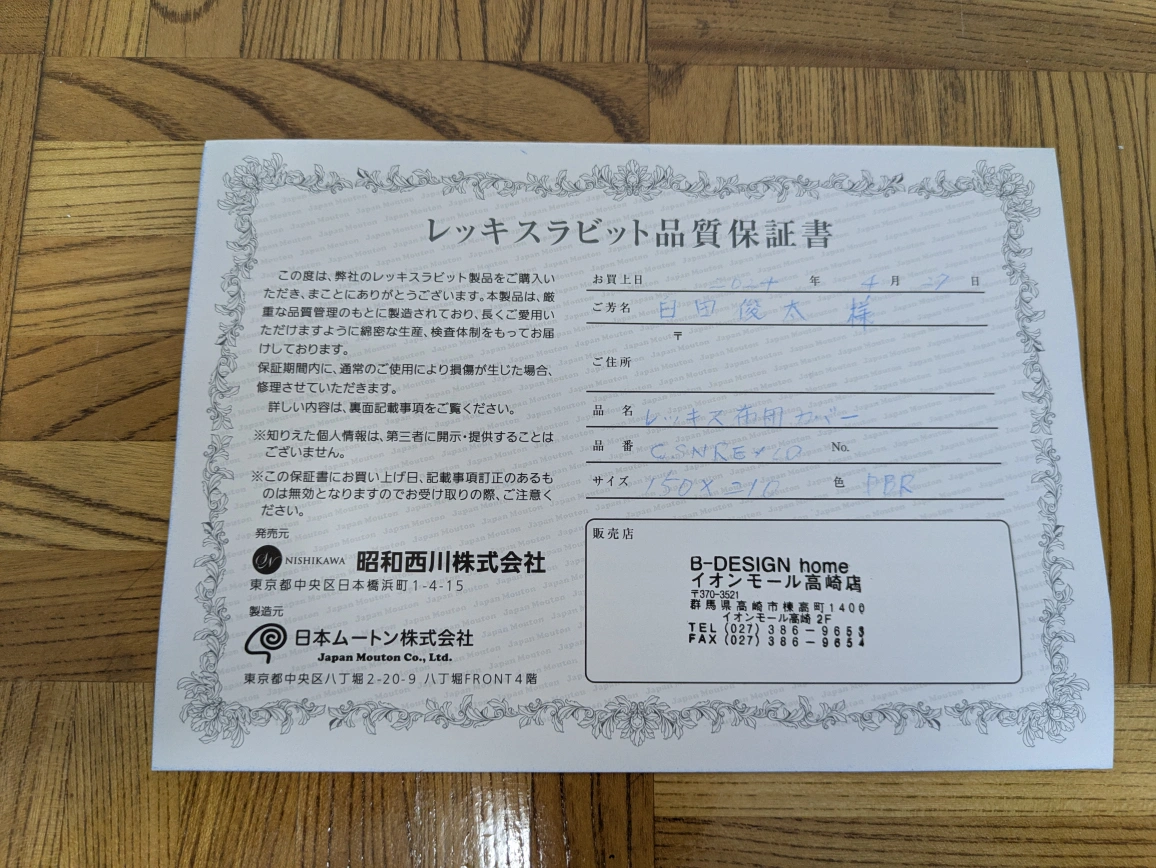 レッキスラビット品質保証書
この度は、弊社のレッキスラビット製品をご購入い
ただき、まことにありがとうございます。本製品は、厳
重な品質管理のもとに製造されており、長くご愛用い
ただけますように綿密な生産、検査体制をもってお届
けしております。
保証期間内に、通常のご使用により損傷が生じた場合、
修理させていただきます。
詳しい内容は、裏面記載事項をご覧ください。
※知りえた個人情報は、第三者に開示・提供することは
ございません。
※この保証書にお買い上げ日、記載事項訂正のあるも
のは無効となりますのでお受け取りの際、ご注意く
ださい。
発売元
NISHIKAWA 昭和西川株式会社
東京都中央区日本橋浜町1-4-15
製造元
日本ムートン株式会社
Japan Mouton Co., Ltd.
東京都中央区八丁堀2-20-9 八丁堀FRONT4階
お買上日 2024 年 4 月 29 日
ご芳名 臼田 俊太 様
〒
ご住所
品名 レッキス布団カバー
品番 No.
サイズ 150×210 色 PBR
販売店
B-DESIGN home
イオンモール高崎店
〒370-3521
群馬県高崎市棟高町1400
イオンモール高崎 2F
TEL (027) 386-9653
FAX (027) 386-9654